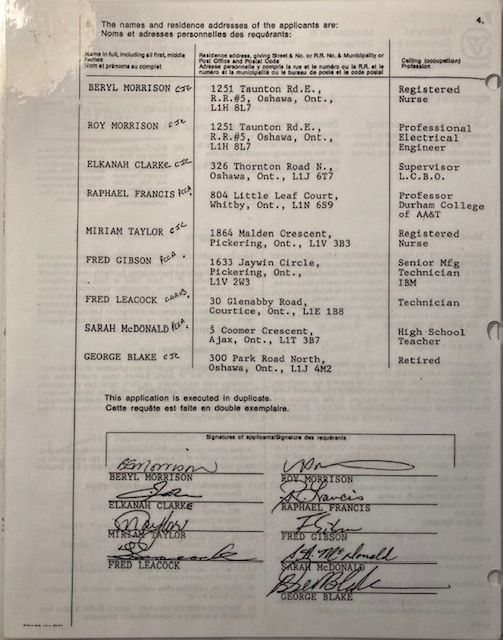 4.
8. The names and residence addresses of the applicants are:
Noms et adresses personnelles des requérants:
Name in full, including all first, middle
names
Nom et prénoms au complet
Residence address, giving Street & No. or R.R. No. & Municipality or
Post Office and Postal Code
Adresse personnelle y compris la rue et le numéro ou la R.R. et le
numéro et la municipalité ou le bureau de poste et le code postal
Calling (occupation)
Profession
BERYL MORRISON CJC
1251 Taunton Rd.E.,
R.R.#5, Oshawa, Ont.,
L1H 8L7
Registered
Nurse
ROY MORRISON CJC
1251 Taunton Rd.E.,
R.R.#5, Oshawa, Ont.,
L1H 8L7
Professional
Electrical
Engineer
ELKANAH CLARKE CJC
326 Thornton Road N.,
Oshawa, Ont., L1J 6T7
Supervisor
L.C.B.O.
RAPHAEL FRANCIS PCCA
804 Little Leaf Court,
Whitby, Ont., L1N 6S9
Professor
Durham College
of AA&T
MIRIAM TAYLOR CJC
1864 Malden Crescent,
Pickering, Ont., L1V 3B3
Registered
Nurse
FRED GIBSON PCCA
1633 Jaywin Circle,
Pickering, Ont.,
L1V 2W3
Senior Mfg
Technician
IBM
FRED LEACOCK
30 Glenabby Road,
Courtice, Ont., L1E 1B8
Technician
SARAH McDONALD PCCA
5 Coomer Crescent,
Ajax, Ont., L1T 3B7
High School
Teacher
GEORGE BLAKE CJC
300 Park Road North,
Oshawa, Ont., L1J 4M2
Retired
This application is executed in duplicate.
Cette requête est faite en double exemplaire.
Signatures of applicants/Signature des requérants
B Morrison
BERYL MORRISON
ROY MORRISON
ELKANAH CLARKE
R. Francis
RAPHAEL FRANCIS
MTaylor
MIRIAM TAYLOR
F Gibson
FRED GIBSON
FRED LEACOCK
S.A. McDonald
SARAH McDONALD
GEORGE BLAKE